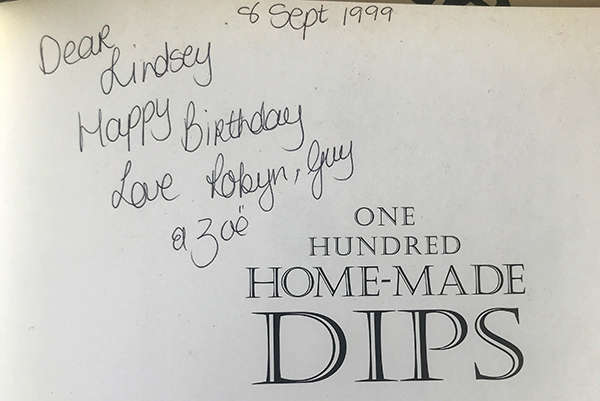 8 Sept 1999
Dear
Lindsey
Happy Birthday
Love Robyn, Guy
& Zoë
ONE
HUNDRED
HOME-MADE
DIPS